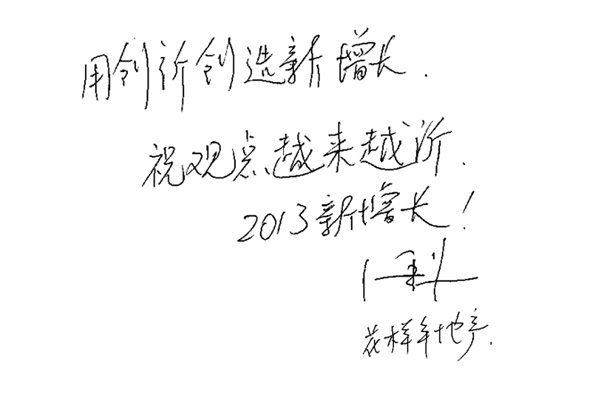 用创新创造新增长.
祝观点越来越新.
2013新增长!
花样年地产.